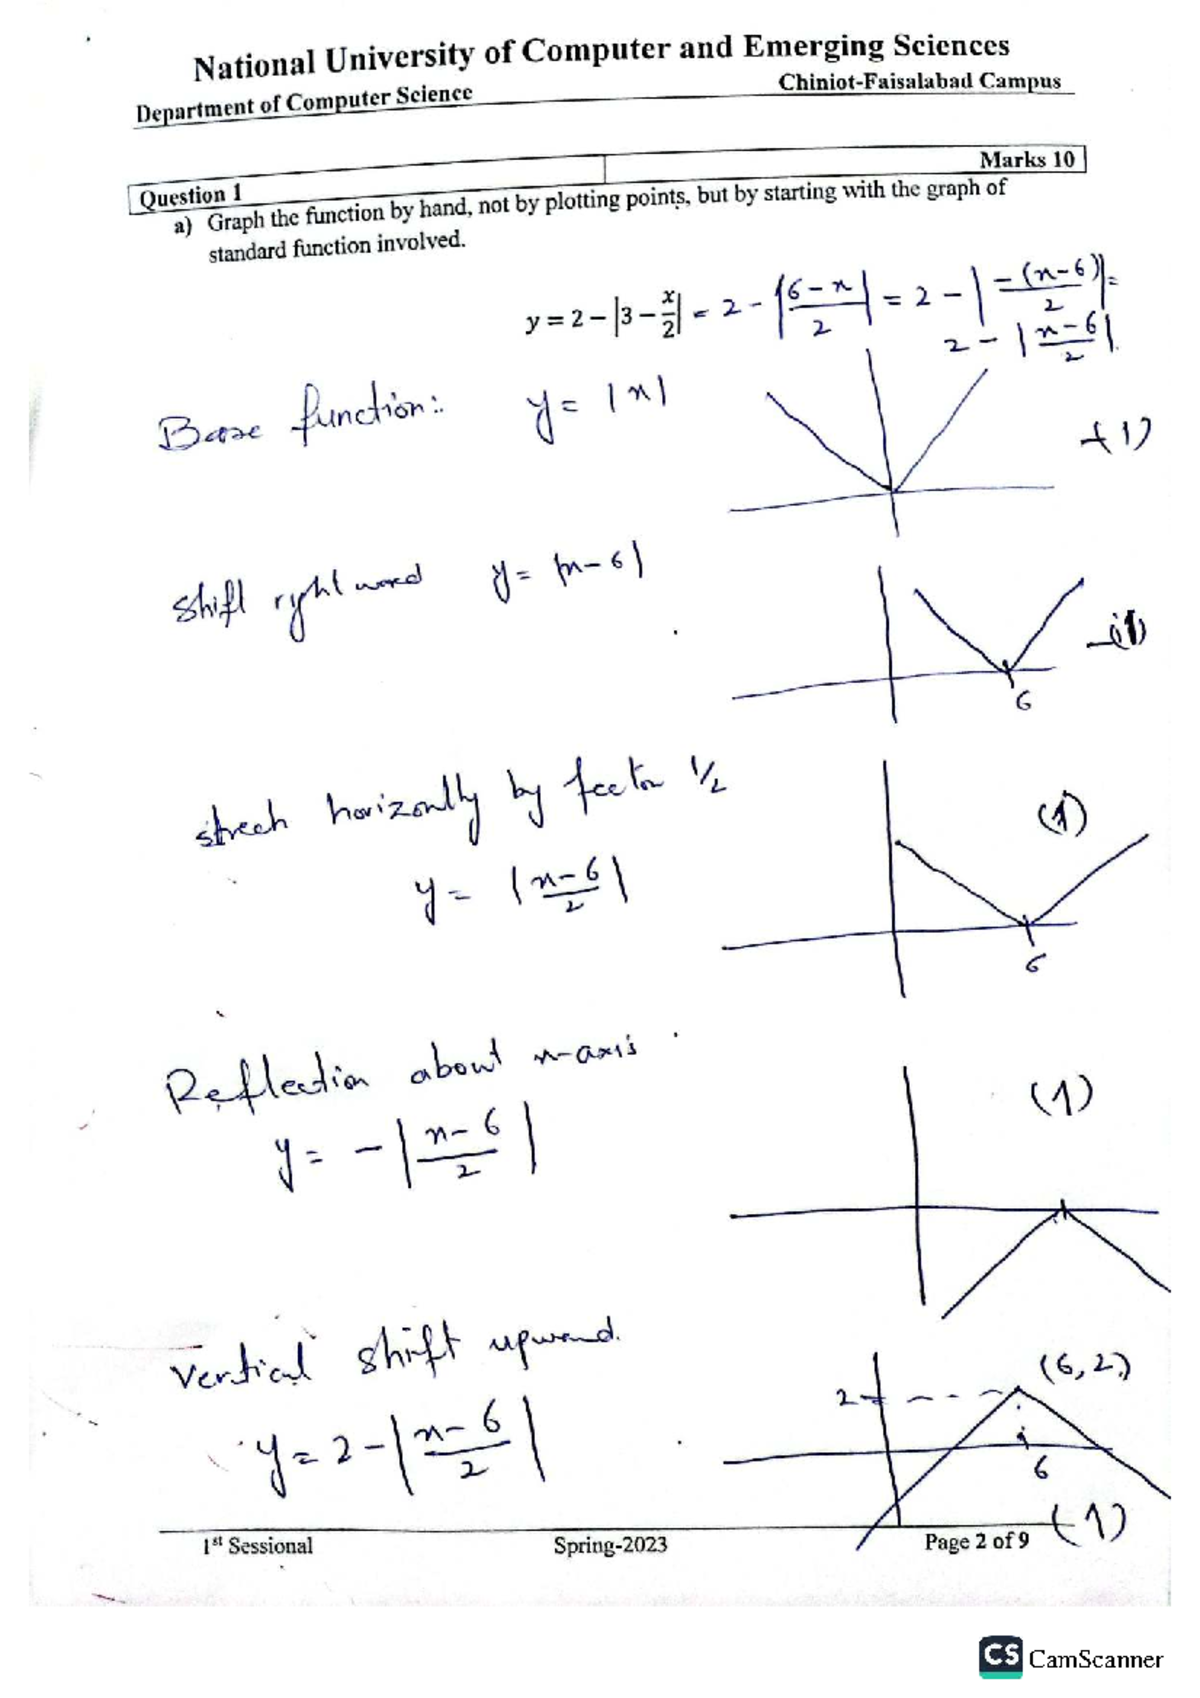 National University of Computer and Emerging Sciences
Department of Computer Science Chiniot-Faisalabad Campus
Question 1 Marks 10
a) Graph the function by hand, not by plotting points, but by starting with the graph of
standard function involved.
y = 2 − |3 − x/2| = 2 − |6−x/2| = 2 − |−(x−6)/2| =
2 − |x−6/2|
Base function: y = |x| (1)
Shift right ward y = |x−6| (1)
6
strech horizontlly by fector 1/2 (1)
y = |x−6/2|
6
Reflection about x-axis (1)
y = −|x−6/2|
Vertical shift upward. (6,2)
2
y = 2 − |x−6/2|
6
(1)
1st Sessional Spring-2023 Page 2 of 9
CS CamScanner